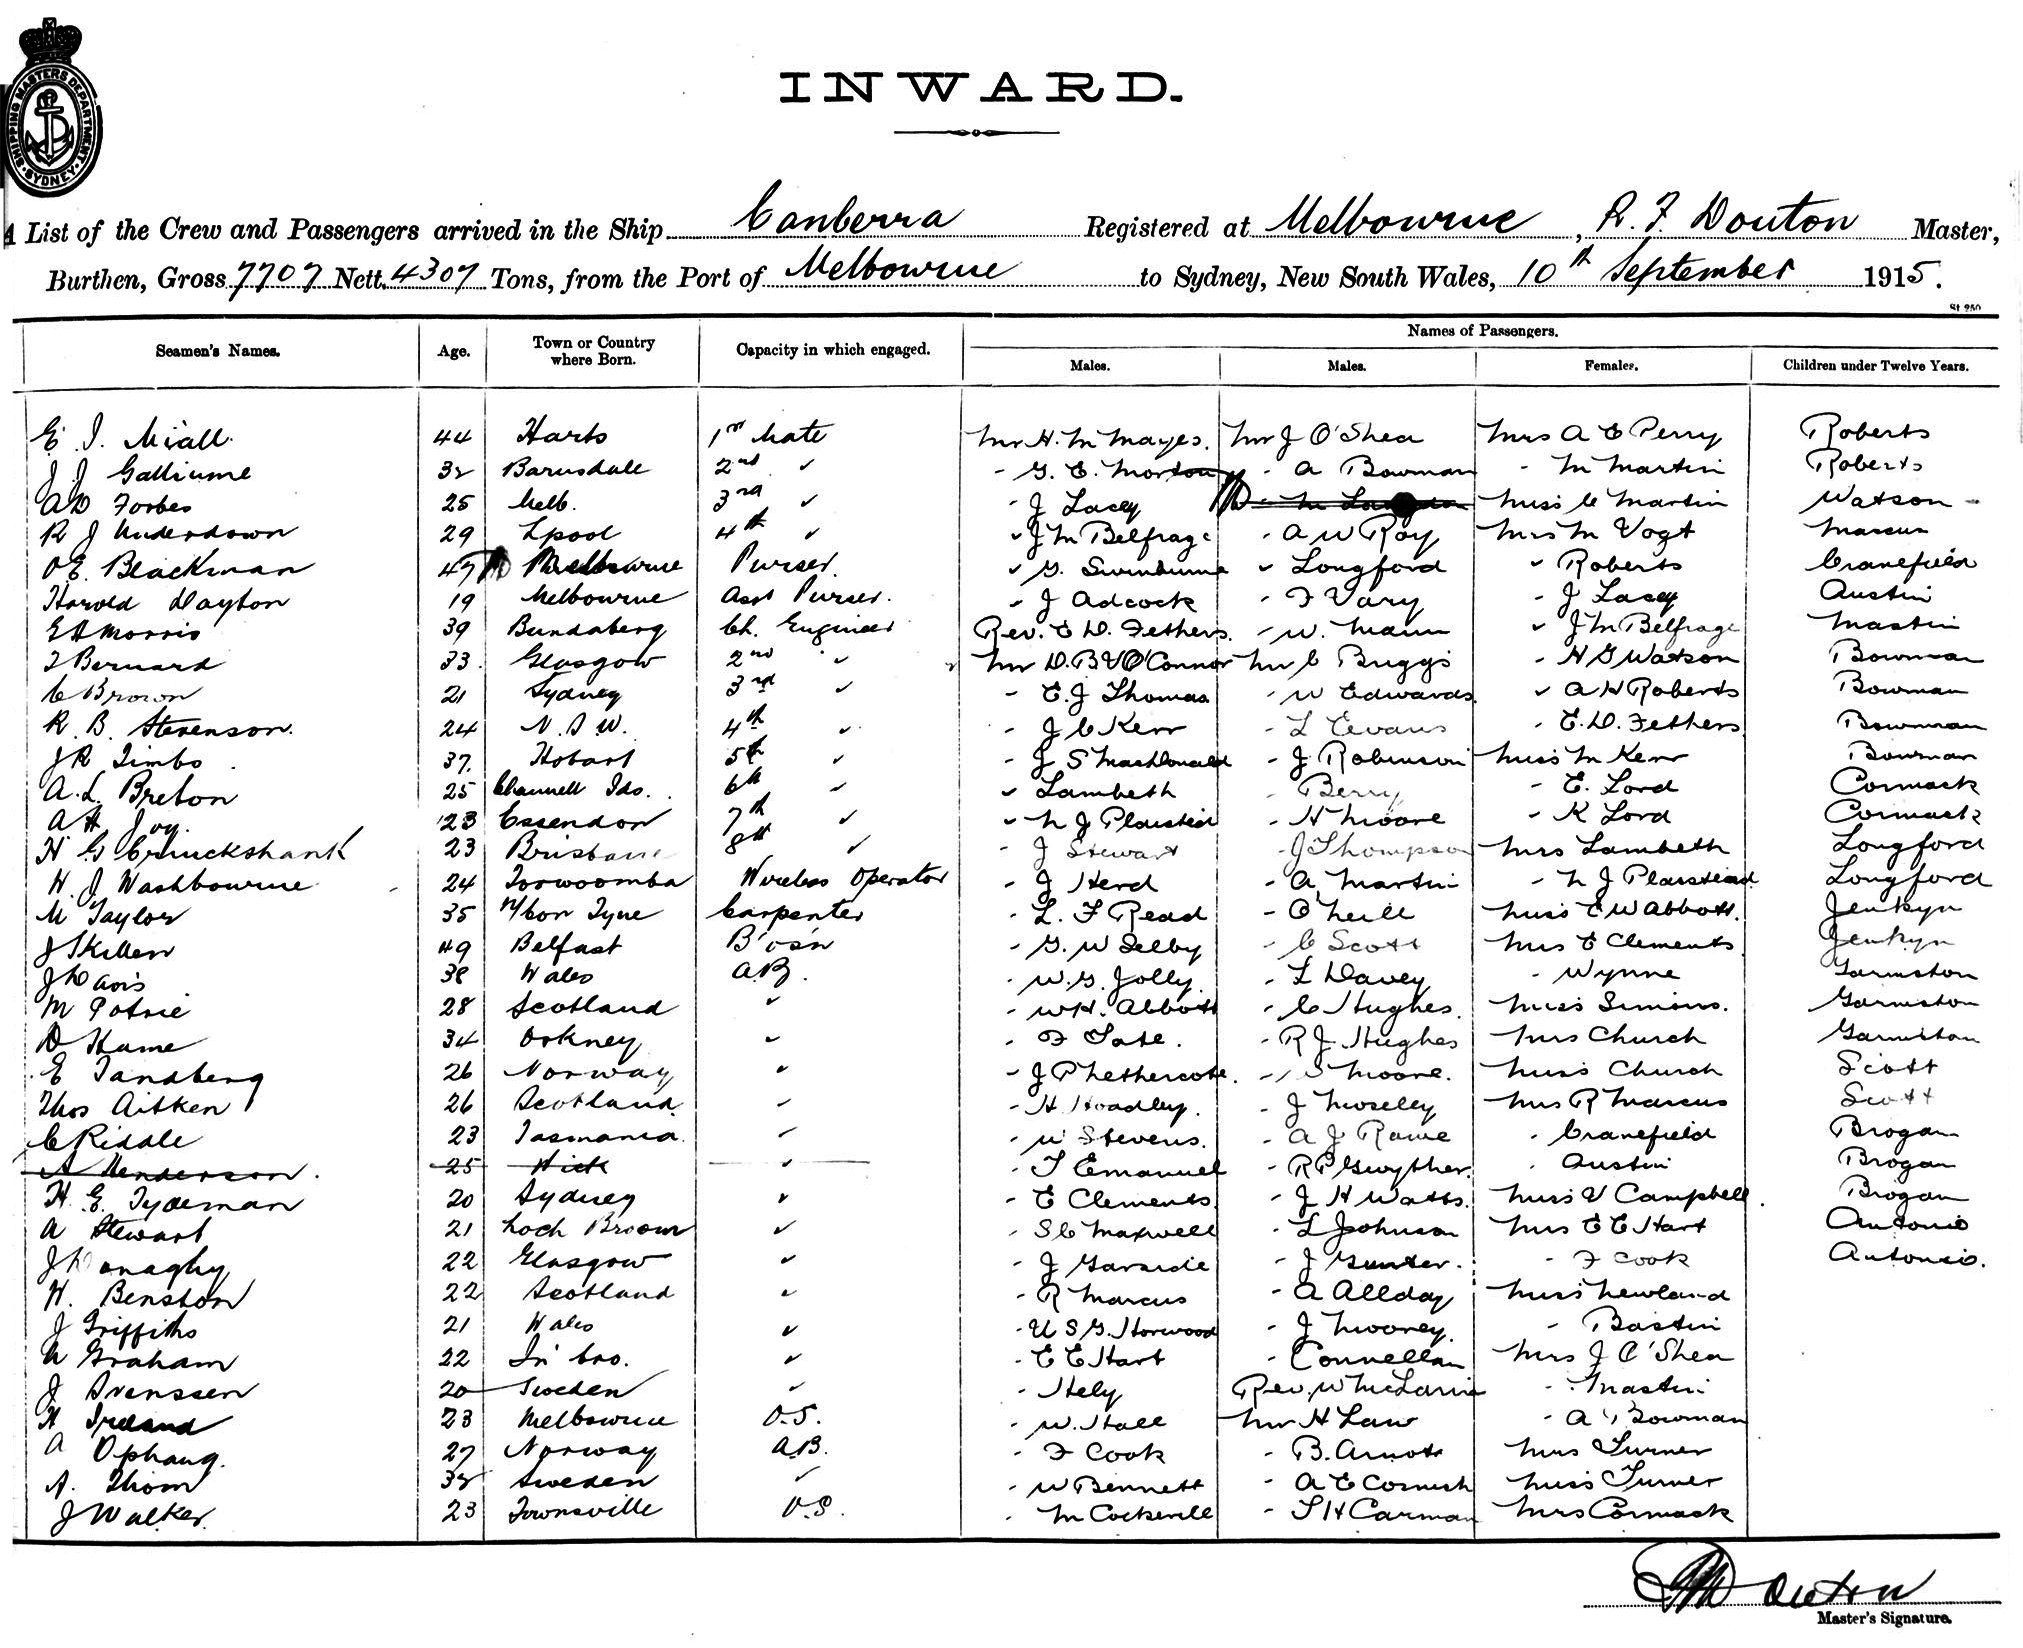 SHIPPING MASTERS DEPARTMENT · SYDNEY ·
INWARD.
A List of the Crew and Passengers arrived in the Ship Canberra Registered at Melbourne, R. F. Douton Master,
Burthen, Gross 7707 Nett. 4307 Tons, from the Port of Melbourne to Sydney, New South Wales, 10th September 1915.
St 250
Names of Passengers.
Seamen's Names. Age. Town or Country where Born. Capacity in which engaged. Males. Males. Females. Children under Twelve Years.
E. J. Miall. 44 Harts 1st Mate Mr H. M Mayes. Mr J O'Shea Mrs A E Perry Roberts
J. J Galliume 32 Barnsdale 2nd ✓ - G. E. Morton - A Bowman - M Martin Roberts
A D Forbes 25 Melb. 3rd ✓ - J Lacey Miss C Martin Watson
R J Underdown 29 Lpool 4th ✓ ✓ J M Belfrage - A W Roy Mrs M Vogt Marcus
O E. Blackman 47 Melbourne Purser. ✓ G. Swinburne ✓ Longford ✓ Roberts Cranefield
Harold Dayton 19 Melbourne Asst Purser. ✓ J Adcock - F Vary - J Lacey Austin
E A Morris 39 Bundaberg Ch. Engineer Rev. E D. Fethers. - W. Mann ✓ J M Belfrage Martin
J Bernard 33. Glasgow 2nd ✓ Mr D. B V O'Connor Mr C Briggs - H G Watson Bowman
C Brown 21 Sydney 3rd ✓ - E. J Thomas - W Edwards ✓ A H Roberts Bowman
R. B. Stevenson. 24 N. S W. 4th ✓ - J C Kerr - L Evans - E. D. Fethers Bowman
J R Timbs 37. Hobart 5th ✓ - J S MacDonald - J Robinson Miss M Kerr Bowman
A. L. Breton 25 Channell Ids. 6th ✓ ✓ Lambeth - Berry - E. Lord Cormack
A H Joy. 23 Essendon 7th ✓ ✓ N J Plaisted - H Moore - K Lord Cormack
H G Cruickshank 23 Brisbane 8th ✓ - J Stewart - J Thompson Mrs Lambeth Longford
H. J Washbourne 24 Toowoomba Wireless Operator - J Herd - A Martin - N J Plaistead Longford
M Taylor 35 N/con Tyne Carpenter - L. F Read - O'Neill Miss E W Abbott. Jenkyn
J Skillen 49 Belfast B'os'n - G. W Selby - C Scott Mrs E Clements Jenkyn
J Davis 38 Wales A.B. - W. G. Jolly - L Davey - Wynne Garmston
M Petrie 28 Scotland ✓ - W H. Abbott - C Hughes. Miss Simins. Garmston
D Hume 34 Orkney ✓ - F Tate. - R J Hughes Mrs Church Garmston
E Tandberg 26 Norway ✓ - J P Hethercote. - S Moore. Miss Church Scott
Thos Aitken 26 Scotland ✓ - H Hoadley. - J Moseley Mrs R Marcus Scott
C Riddle 23 Tasmania ✓ - W Stevens. - A J Rowe - Cranefield Brogan
A Henderson. 25 Wick ✓ - J Emanuel - R P Gwyther. - Austin Brogan
H. E. Tydeman 20 Sydney ✓ - E Clements. - J H Watts. Miss V Campbell. Brogan
A Stewart 21 Loch Broom ✓ - S C Maxwell - L Johnson Mrs E E Hart Antonio
J Donaghy 22 Glasgow ✓ - J Garside - J Gunter. - F Cook Antonio.
W. Benston 22 Scotland ✓ - R Marcus - A Allday Miss Newland
J Griffiths 21 Wales ✓ - U S G. Horwood - J Mooney. - Bastin
W Graham 22 ✓ - E E Hart - Connellan Mrs J O'Shea
J Svenssen 20 Sweden ✓ - Hely Rev. W McLarin - Martin
H Ireland 23 Melbourne O.S. - W. Hall Mr H Law - A Bowman
A Ophaug. 27 Norway A.B. - F Cook - B. Arnott Mrs Turner
A. Thom 32 Sweden ✓ - W Bennett - A E Cornish Miss Turner
J Walker. 23 Townsville O.S. - M Cockerill - J H Carman Mrs Cormack
Douton
Master's Signature.